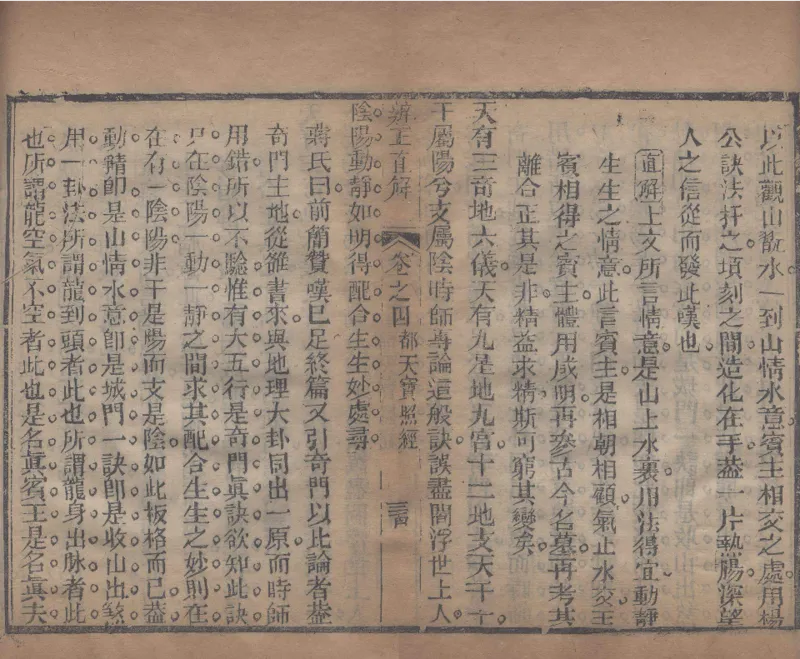 以此觀山翫水一到山情水意賓主相交之處用楊
公訣法扞之頃刻之間造化在手葢一片熱腸深望
人之信從而發此嘆也
直解上文所言情意是山上水裏用法得宜動靜
生生之情意此言賓主是相朝相顧氣止水交主
賓相得之賓主體用咸明再叅古今名墓再考其
離合正其是非精益求精斯可窮其變矣
天有三奇地六儀天有九星地九宮十二地支天干十
干屬陽兮支屬陰時師專論這般訣誤盡閻浮世上人
陰陽動靜如明得配合生生妙處尋
辨正直解
卷之四
都天寶照經
蔣氏曰前簡贊嘆已足終篇又引奇門以此論者葢
奇門主地從雒書來與地理大卦同出一原而時師
用錯所以不驗惟有大五行是奇門眞訣欲知此訣
只在陰陽一動一靜之間求其配合生生之妙則在
在有一陰陽非干是陽而支是陰如此板格而已葢
動靜即是山情水意即是城門一訣即是收山出煞
用一卦法所謂龍到頭者此也所謂龍身出脉者此
也所謂龍空氣不空者此也是名眞賓主是名眞夫